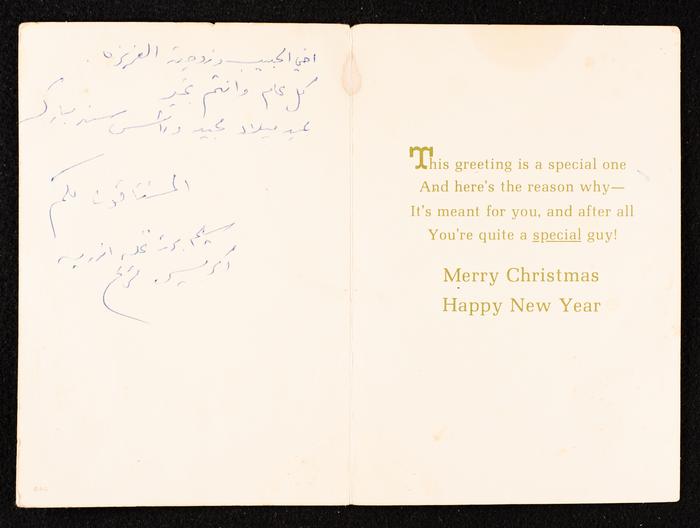 اخي الحبيب وزوجته العزيزه
كل عام وانتم بخير
عيد ميلاد مجيد وراس سنه مبارك
المشتاقون لكم
This greeting is a special one
And here's the reason why—
It's meant for you, and after all
You're quite a special guy!
Merry Christmas
Happy New Year